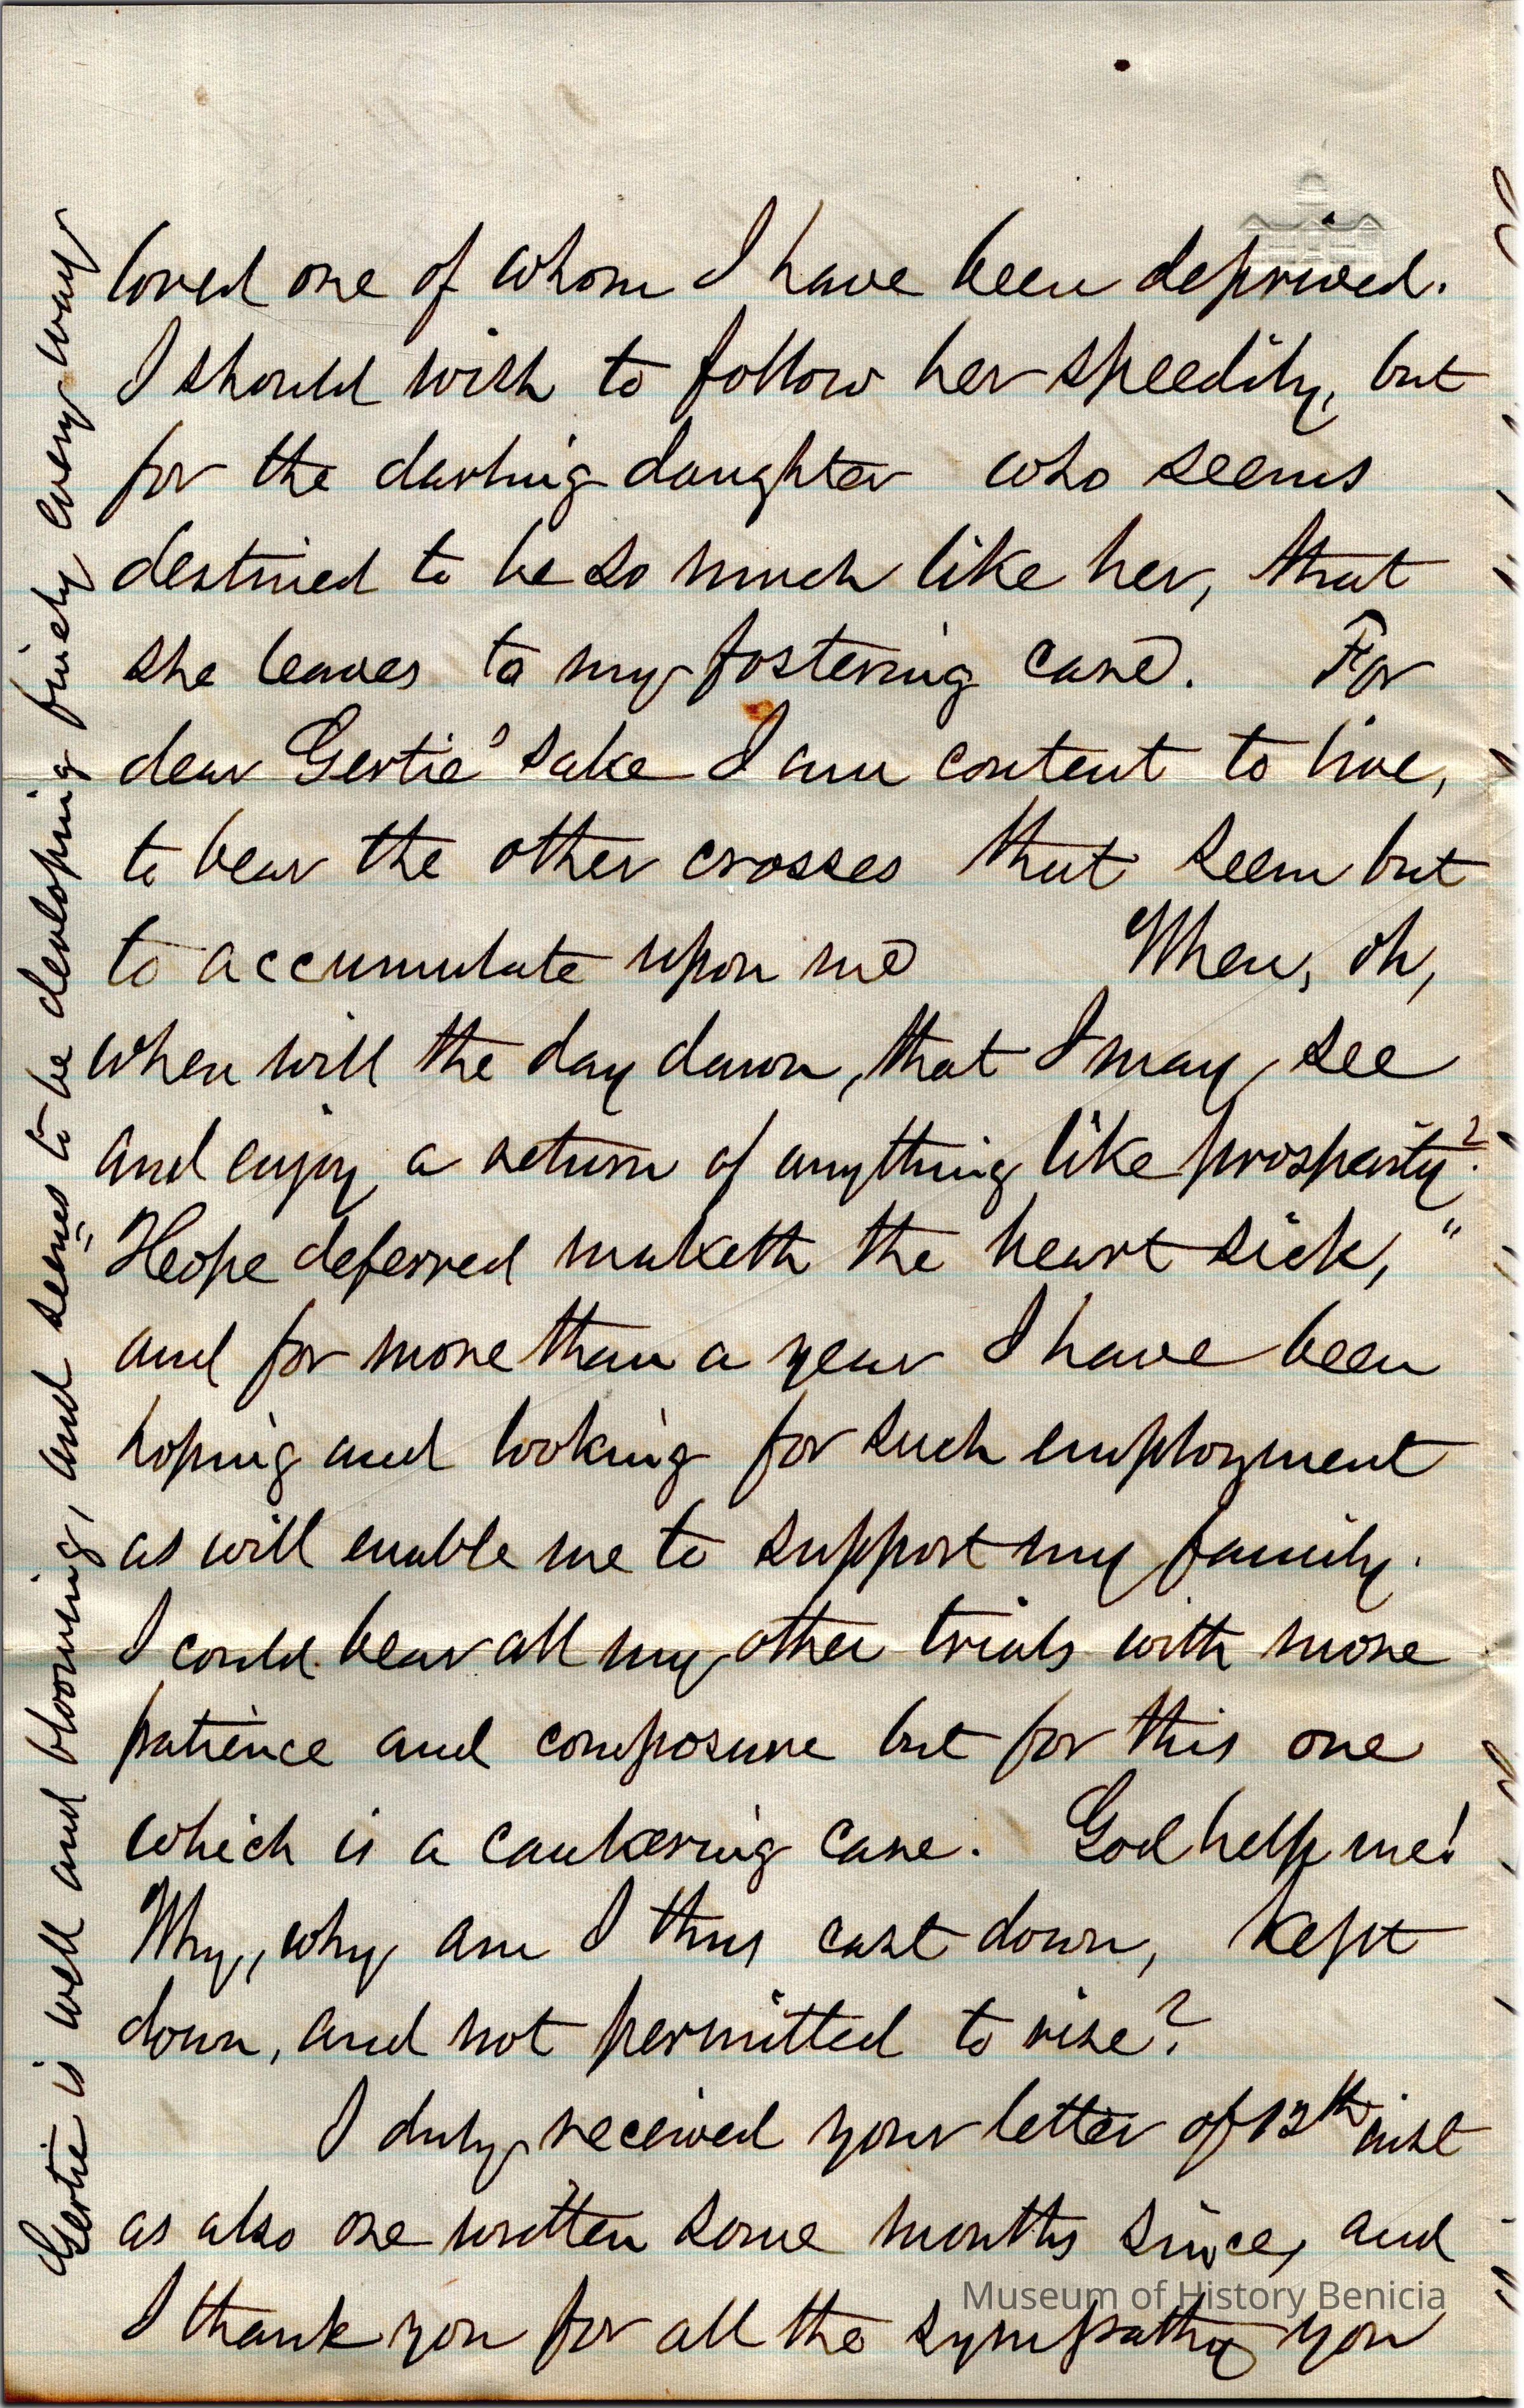 loved one of whom I have been deprived.
I should wish to follow her speedily, but
for the darling daughter who seems
destined to be so much like her, that
she leaves to my fostering care. For
dear Gertie's sake I am content to live,
to bear the other crosses that seem but
to accumulate upon me When, oh,
when will the day dawn, that I may see
and enjoy a return of anything like prosperity?
"Hope deferred maketh the heart sick,"
and for more than a year I have been
hoping and looking for such employment
as will enable me to support my family.
I could bear all my other trials with more
patience and composure but for this one
which is a cankering care. God help me!
Why, why am I thus cast down, kept
down, and not permitted to rise?
I duly received your letter of 13th inst
as also one written some months since, and
I thank you for all the sympathy you
Gertie is well and blooming, and seems to be developing finely every way
Museum of History Benicia